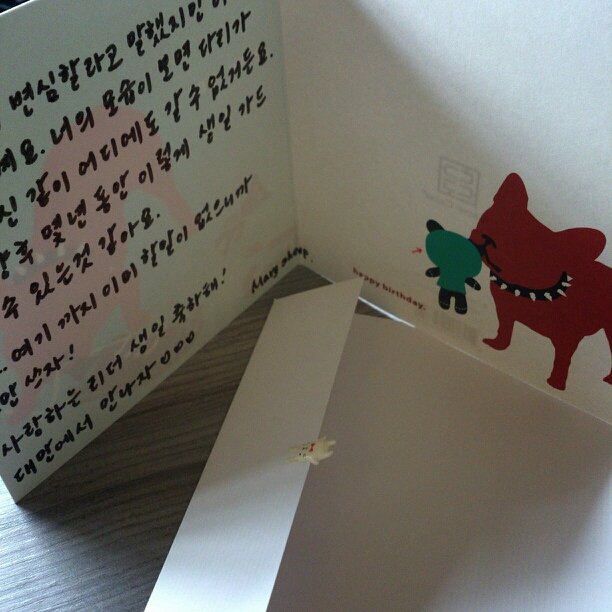 변심할라고 말했지만 이
예요. 너의 모습이 보면 다리가
신 감이 어디에도 갈 수 없거든요.
록 몇년 동안 이렇게 생일 카드
수 있는것 같아요.
여기 까지 이미 할말이 없으니까
만 쓰자!
사랑하는 리더 생일 축하해!
대만에서 만나자 ○○○
Mary sheep.
happy birthday.